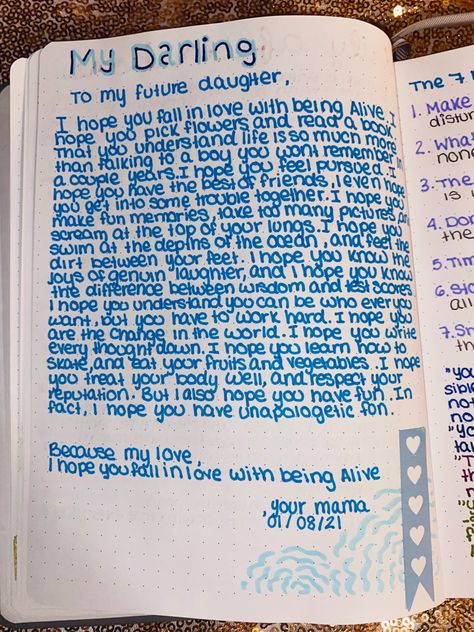 My Darling
To my future daughter,
I hope you fall in love with being Alive. I
hope you pick flowers and read a book
That you understand life is so much more
than talking to a boy you wont remember in
a couple years. I hope you feel pursued. I
hope you have the best of friends, I even hope
you get into some trouble together. I hope you
make fun memories, take too many pictures and
scream at the top of your lungs. I hope you
swim at the depths of the ocean, and feel the
dirt between your feet. I hope you know the
joys of genuin laughter, and I hope you know
the difference between wisdom and test scores
I hope you understand you can be who ever you
want, but you have to work hard. I hope you
are the change in the world. I hope you write
every thought down. I hope you learn how to
skate, and eat your fruits and vegetables. I hope
you treat your body well, and respect your
reputation. But I also hope you have fun. In
fact, I hope you have unapologetic fon.
Because my love,
I hope you fall in love with being Alive
, your mama
01/08/21
The 7
1. Make
distur
2. What
none
3. The
is
4. Don
the
5. Tim
6. Sto
all
7. S
"you
sib
not
no
"Yo
tal
"T